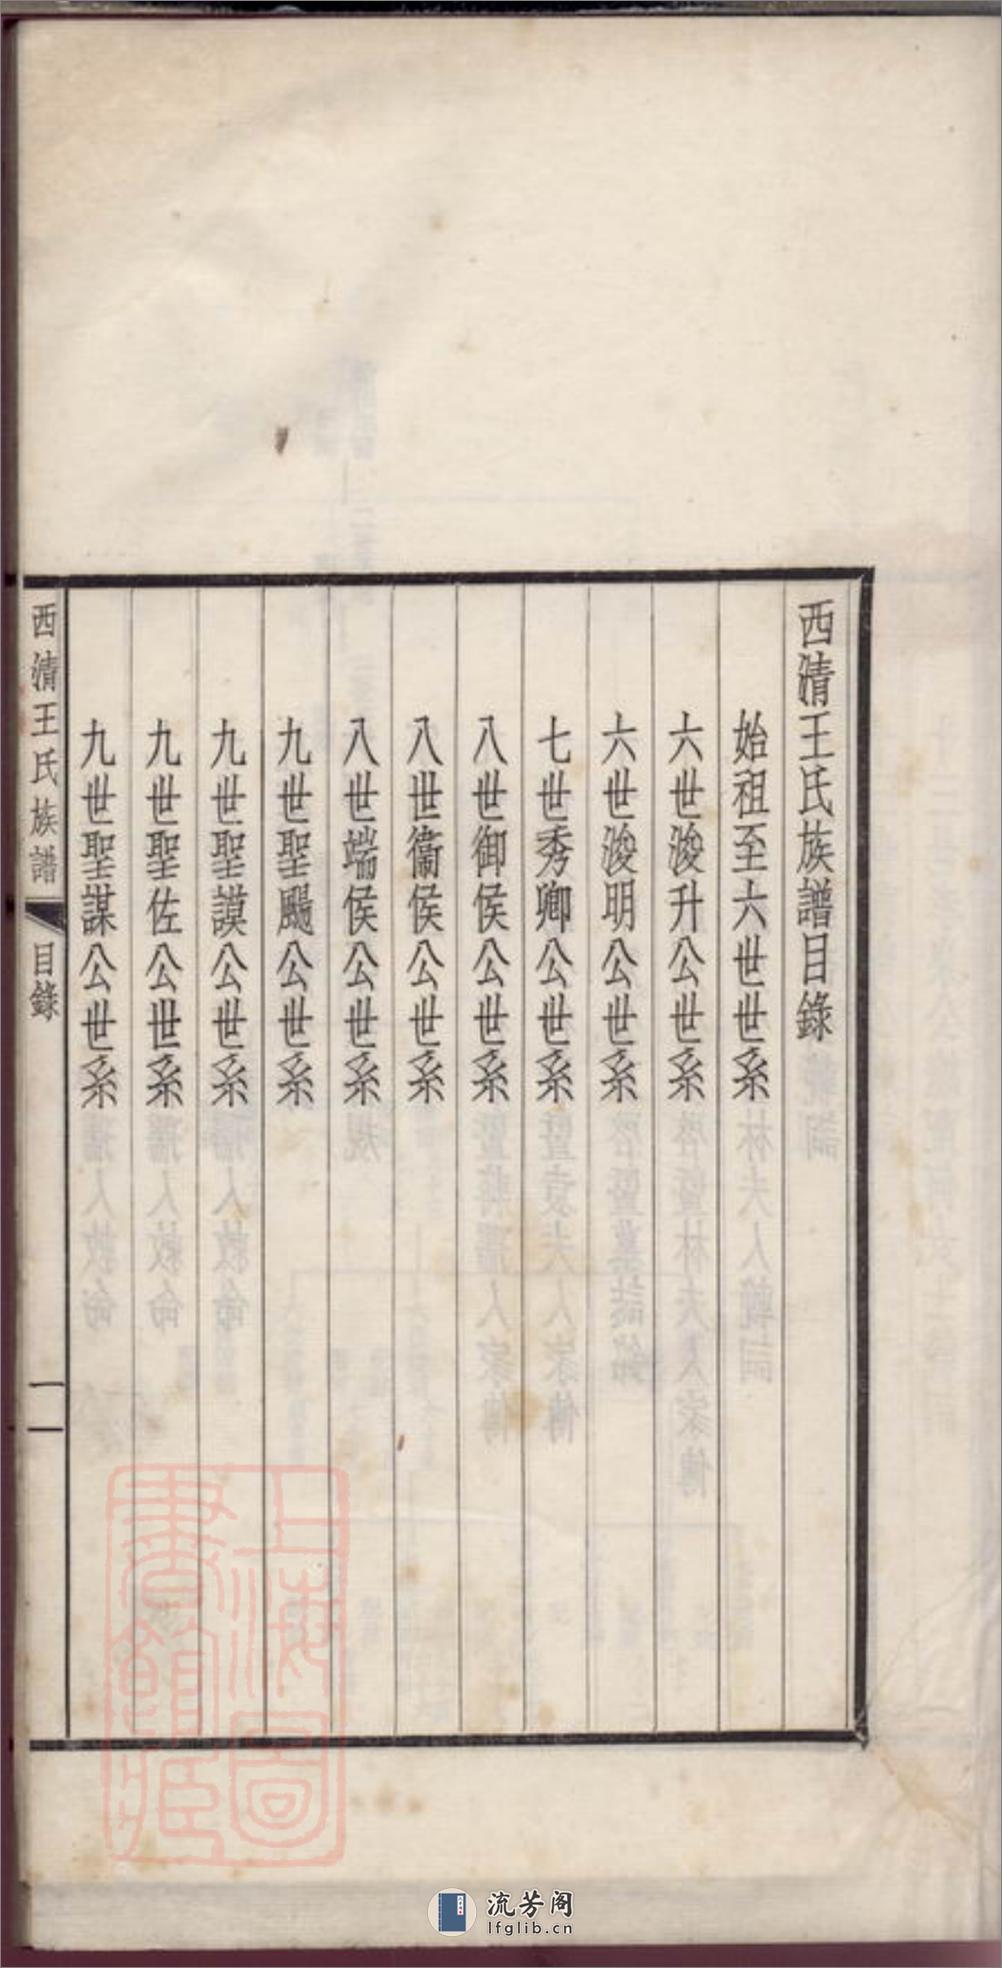 西清王氏族譜目錄
始祖至六世世系
六世浚升公世系
六世浚明公世系
七世秀卿公世系
八世御侯公世系
八世衞侯公世系
八世端侯公世系
九世聖颺公世系
九世聖謨公世系
九世聖佐公世系
九世聖謀公世系
西清王氏族譜
目錄
一
上海圖
書館藏
流芳阁
lfglib.cn